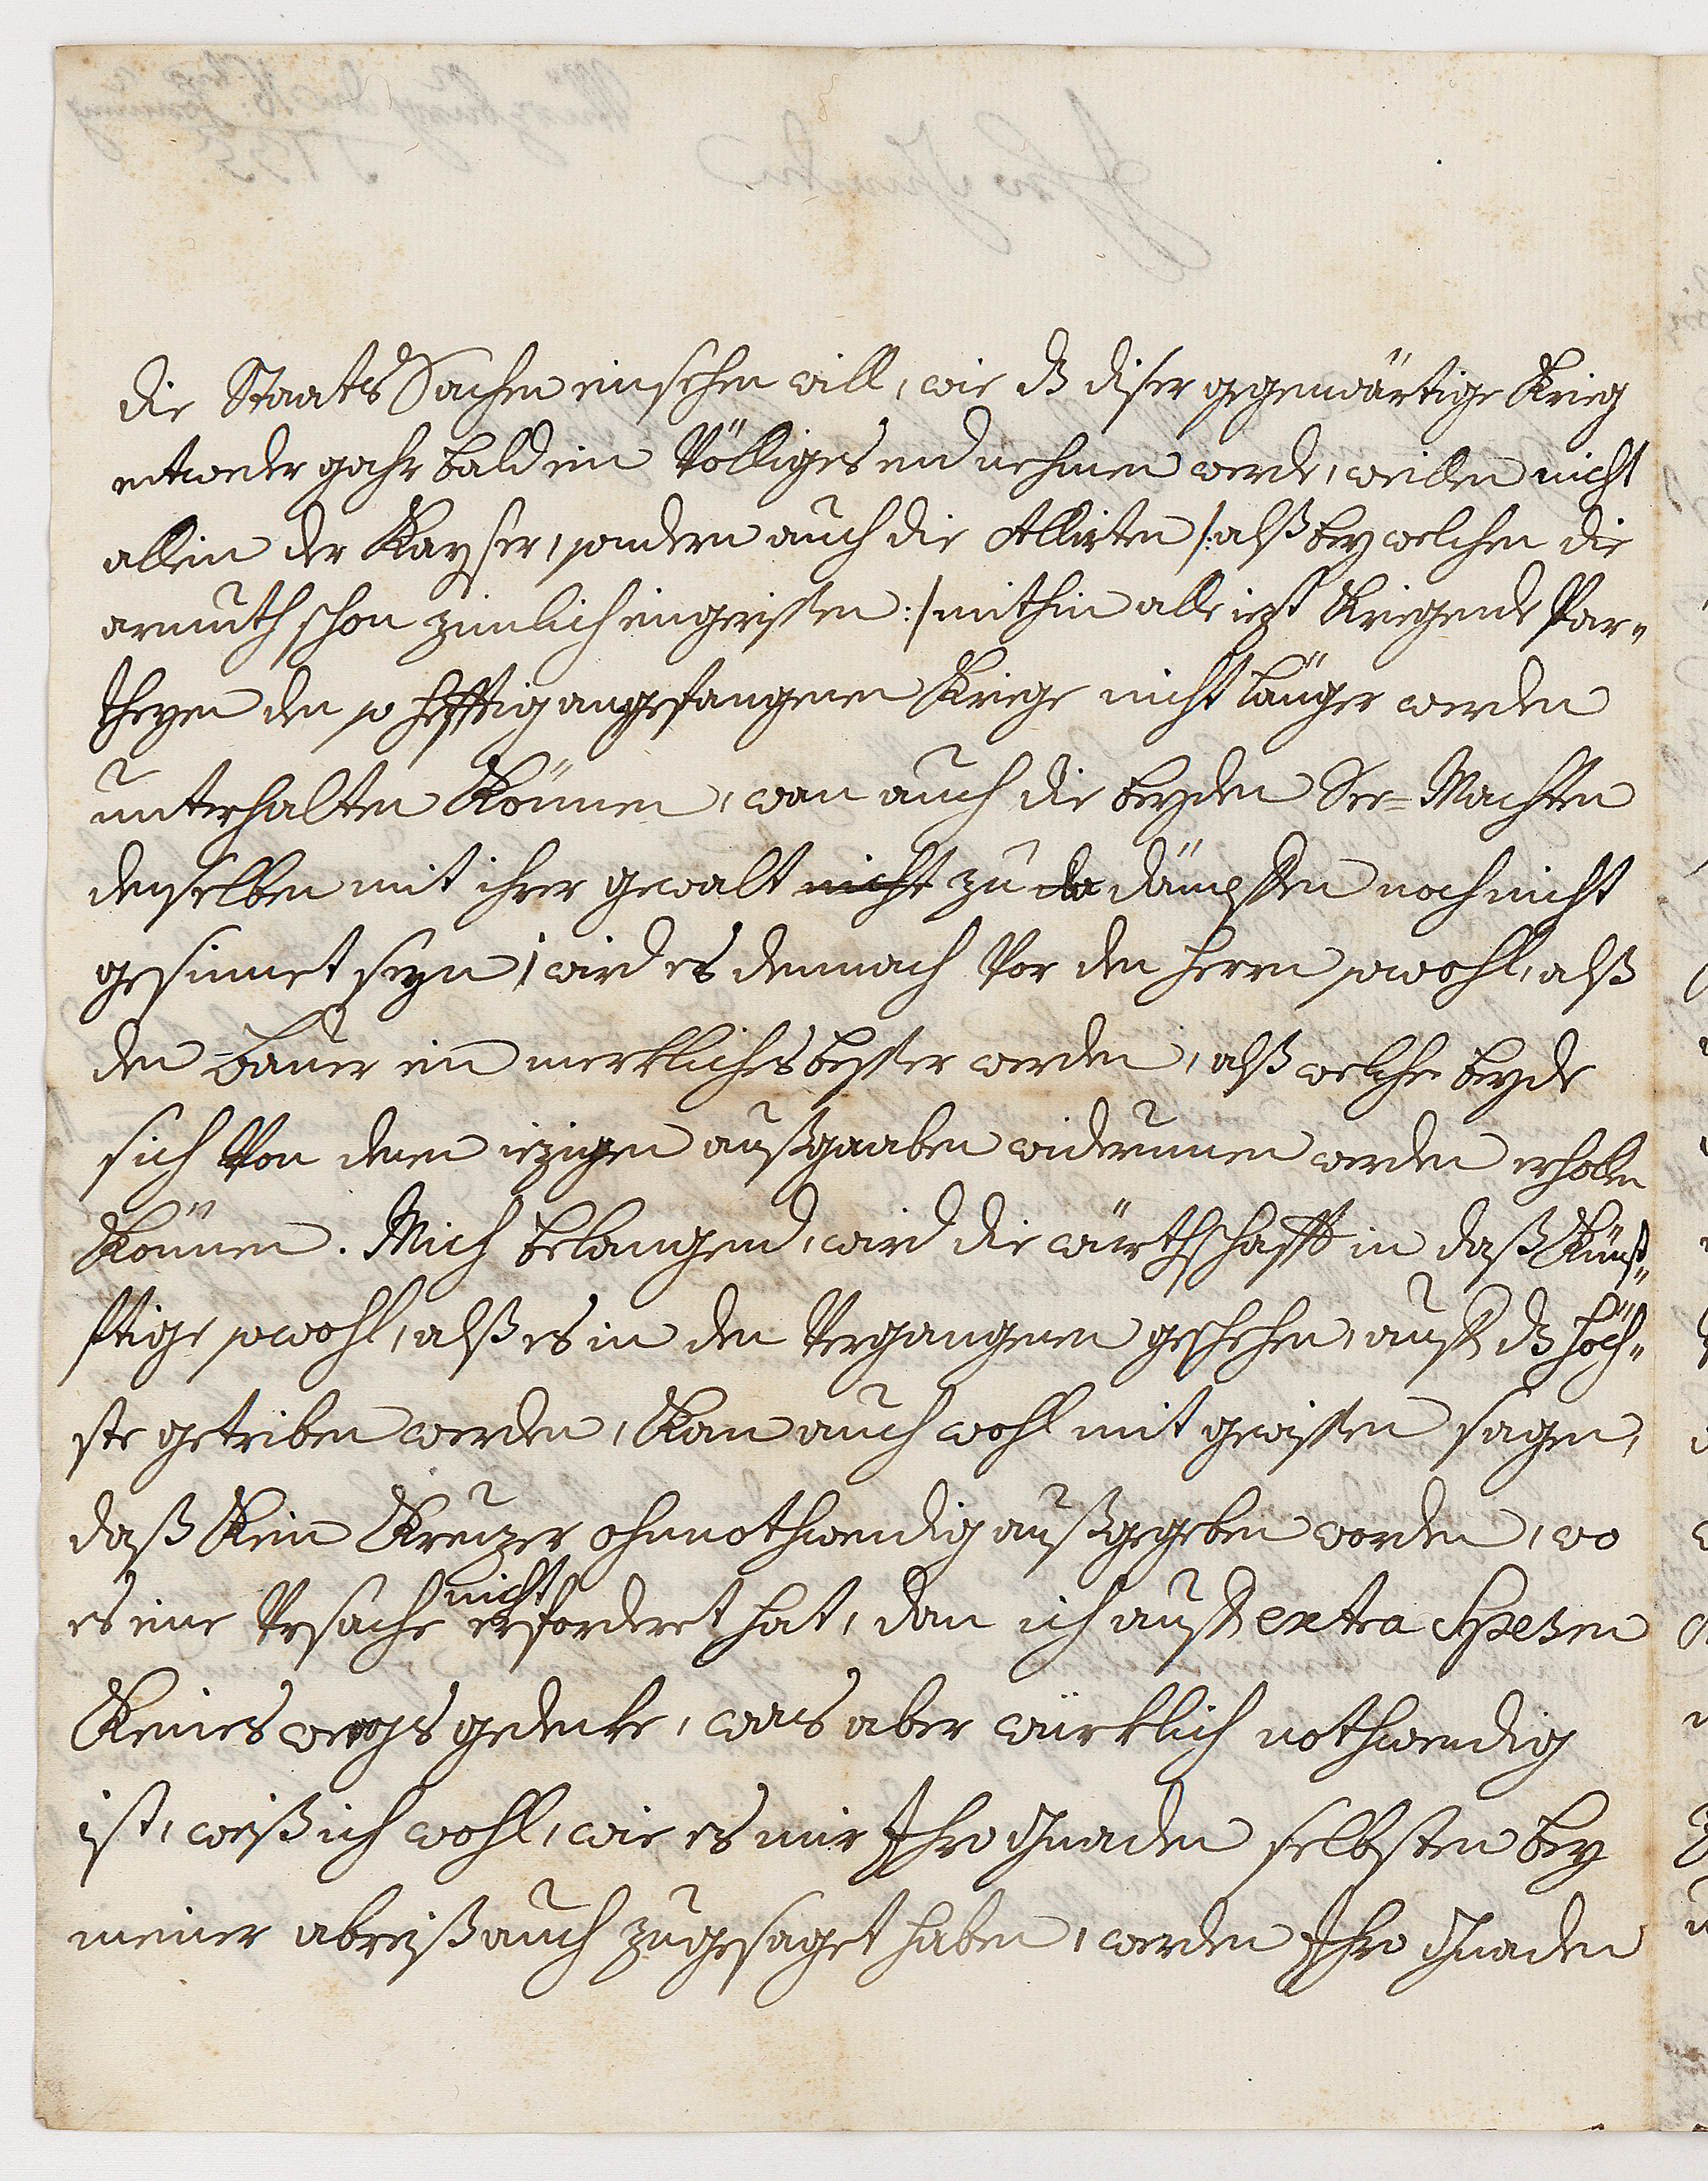 die Staats Sachen einsehen will, wie dß diser gegenwärtige Krieg
entweder gahr bald ein Völliges end nehmen werde, weillen nicht
allein der Kayser, sondern auch die Allirten /: alß bey welchen die
armuth schon zimlich eingerissen :/ mithin alle iezt Kriegende Par„
theyen den so hefftig angefangenen Kriege nicht länger werden
unterhalten Können, wan auch die beyden See=Machten
denselben mit ihrer gewalt nicht zu da dämpffen noch nicht
gesinnet seyn, wird es demnach Vor den Herrn sowohl, alß
den Bauer ein merkliches besser werden, alß welche beyde
sich Von denen iezigen außgaaben widerumen werden erhollen
Können. Mich belangend, wird die würthschafft in daß Künf„
fftige sowohl, alß es in den Vergangenen geschehen, auff dß höch„
ste getriben werden, Kan auch wohl mit gewissen sagen,
daß Kein Kreuzer ohnnothwendig außgegeben worden, wo
nicht
es eine Ursache erforderet hat, dan ich auff extra Spesen
Keines weegs gedencke, was aber würklich nothwendig
ist, weiß ich wohl, wie es mir Ihro Gnaden selbsten bey
meiner abreiß auch zugesaget haben, werden Ihro Gnaden